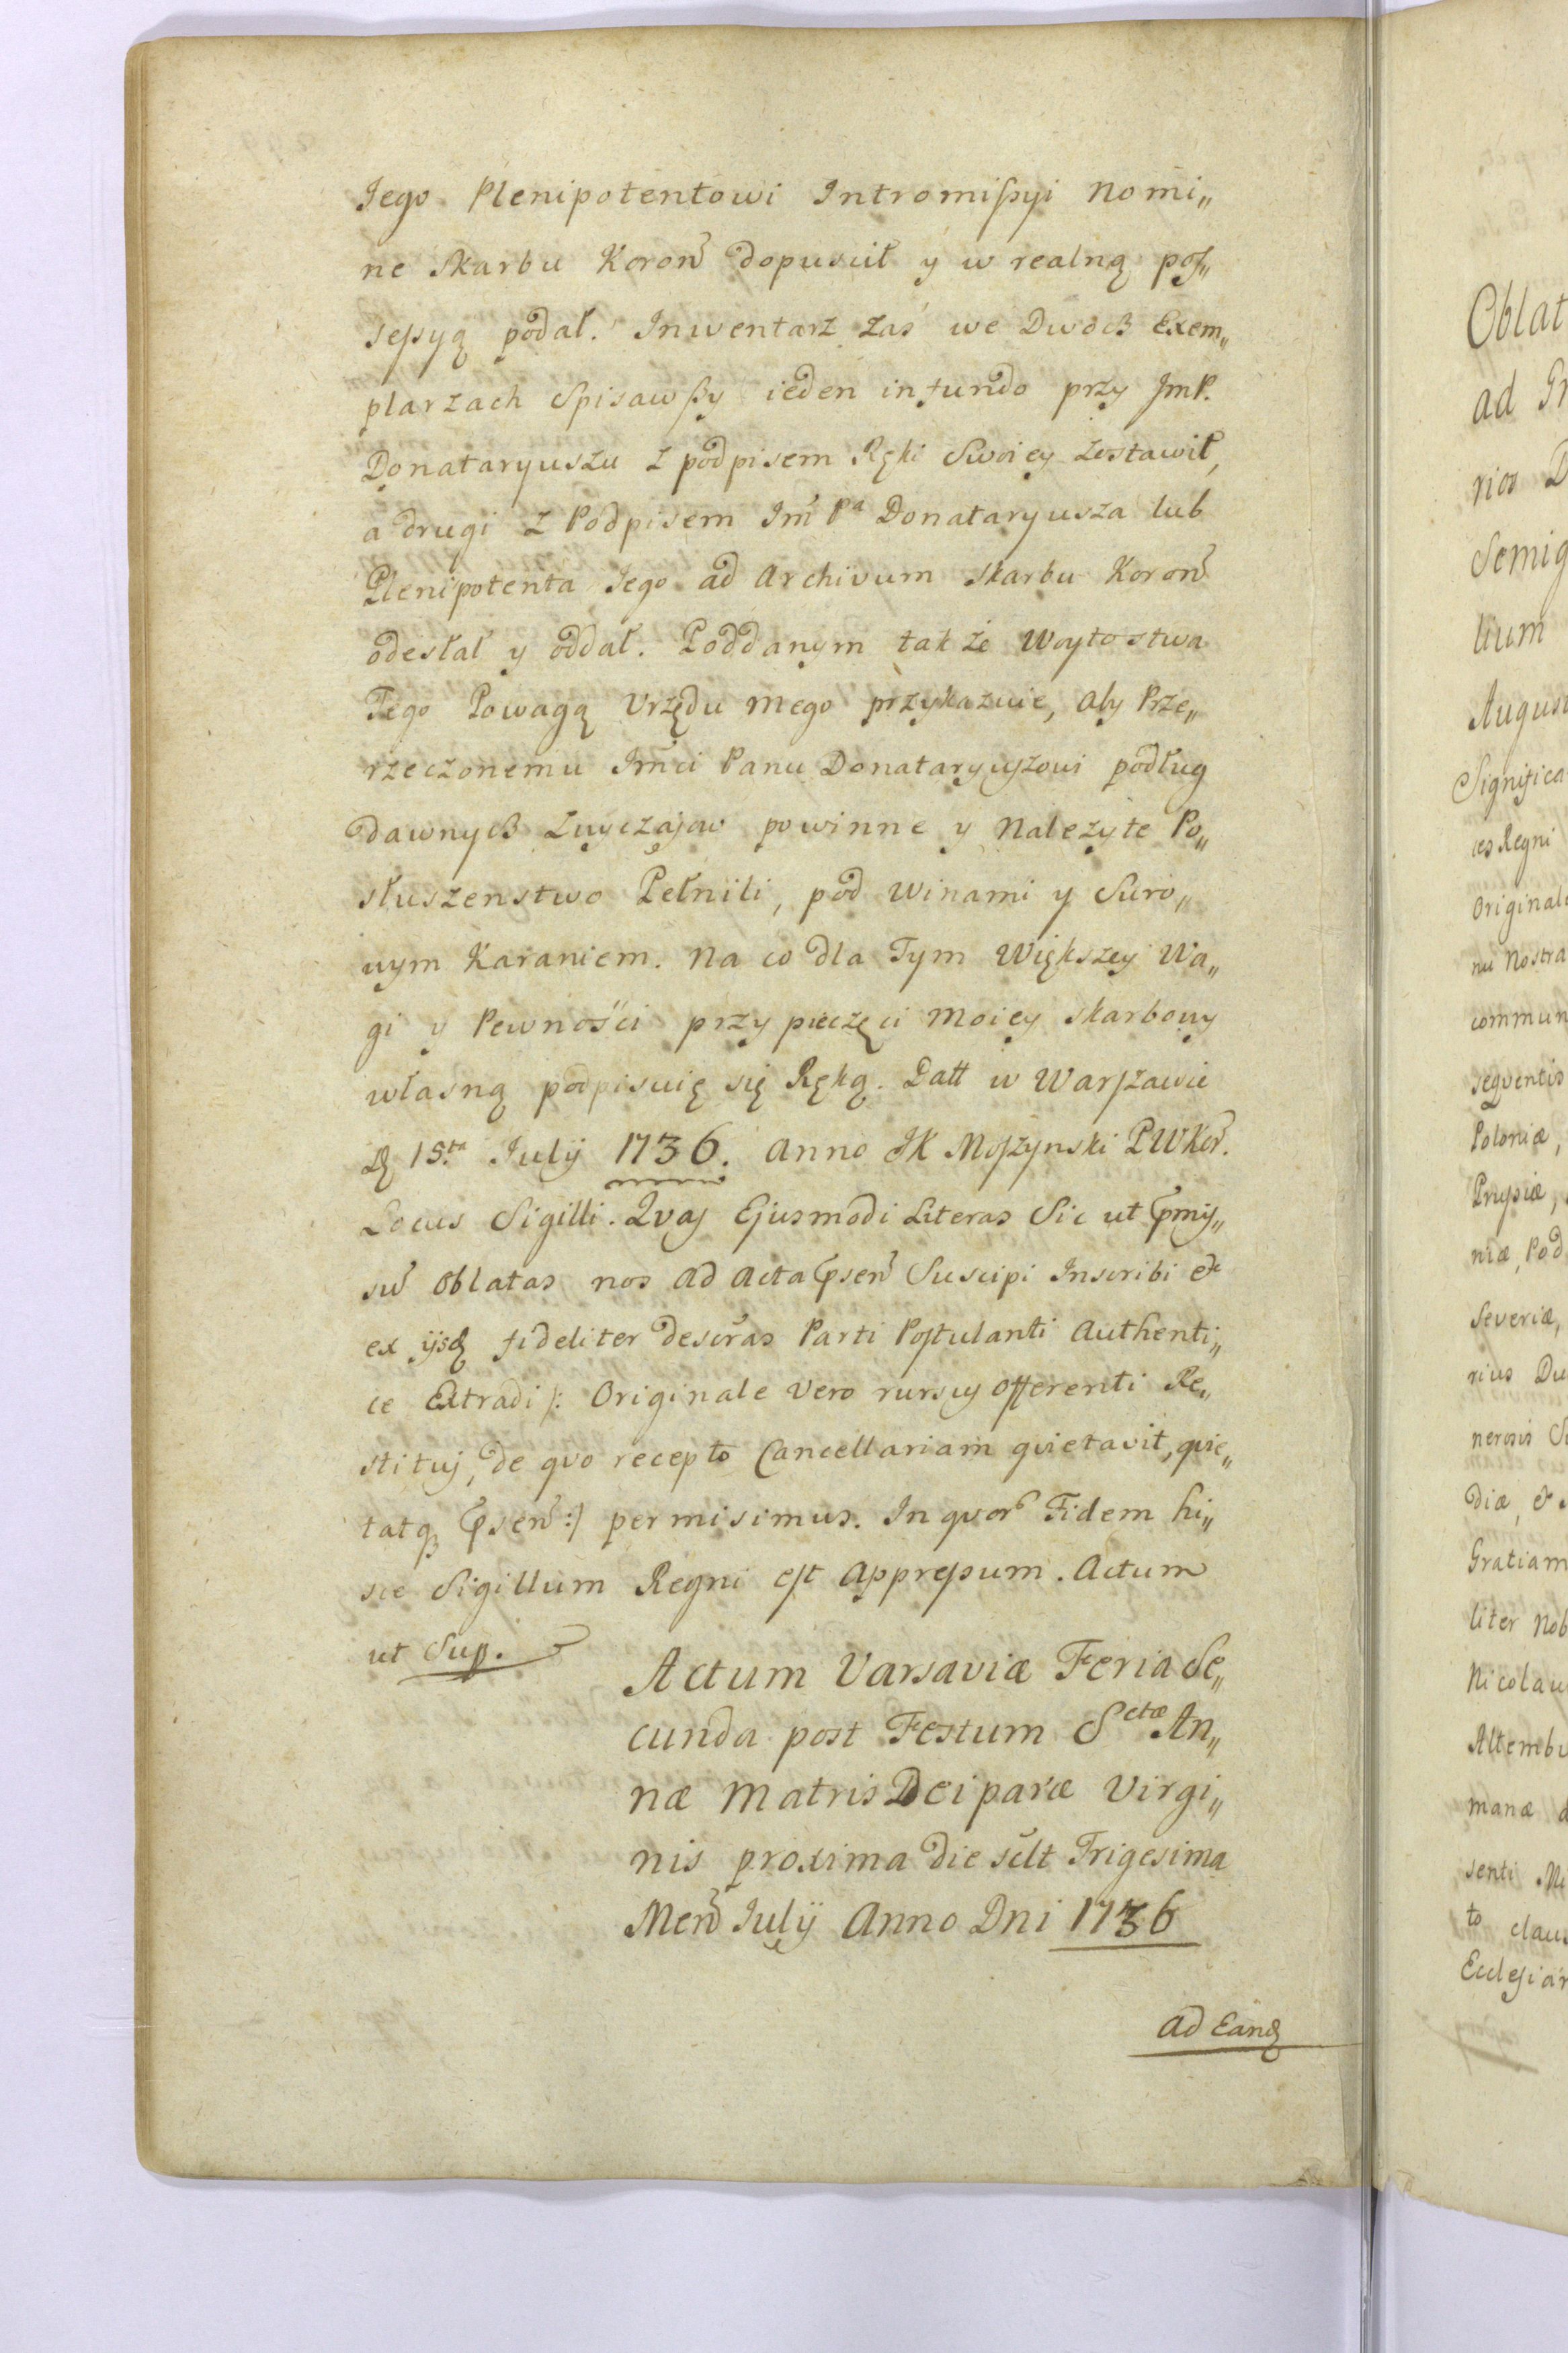 Jego Plenipotentowi Intromissyi Nomi„
ne skarbu Koroñ dopuscił y w realną pos„
sessyą podał. Inwentarz zaś we Dwoch Exem„
plarzach Spisawszy ieden in fundo przy JmP.
Donataryuszu z podpisem Ręki Swoiey zostawił,
a drugi z Podpisem Jm̃ Pa Donataryusza lub
Plenipotenta Jego ad Archivum Skarbu Koroñ
odesłał y oddał. Poddanym takze Woytostwa
Tego Powagą Vrzędu mego przykazuie, aby Prze„
rzeczonemu Jm̃ci Panu Donataryuszowi podług
dawnych zwyczajow powinne y Nalezyte Po„
słuszenstwo Pełnili, pod Winami y Suro„
wym Karaniem. Na co dla Tym Większey Wa„
gi y Pewności przy pieczęci Moiey skarbowy
własną podpisuię się Ręką. Datt w Warszawie
D 15.ta Julij 1736. Anno JK Moszynski PWKor.
Locus Sigilli. Qvas Ejusmodi Literas Sic ut p̃mis„
sũ Oblatas nos ad Acta p̃señ Suscipi Inscribi et
ex ijsq fideliter descr̃as Parti Postulanti Authenti„
ce Extradi /: Originale Vero rursus Offerenti Re„
stituj, de qvo recepto Cancellariam qvietavit, qvie„
tatq p̃señ :/ permisimus. In qvor Fidem hi„
sce Sigillum Regni est Appressum. Actum
ut Sup.
Actum Varsaviæ Feria Se„
cunda post Festum Sctæ An„
næ Matris Deiparæ Virgi„
nis proxima die sc̃lt Trigesima
Meñ Julij Anno Dni 1736
ad Eandq
Oblat
ad Gr
rios D
Semig
lium
August
Significa
ces Regni
Originale
nu Nostra
commun
seqventis
Poloniæ,
Prussiæ,
niæ, Pod
Severiæ,
rius Du
nerosis
diæ, et
Gratiam
liter Nob
Nicolau
Altembu
manæ
senti
to clau
Ecclesiar